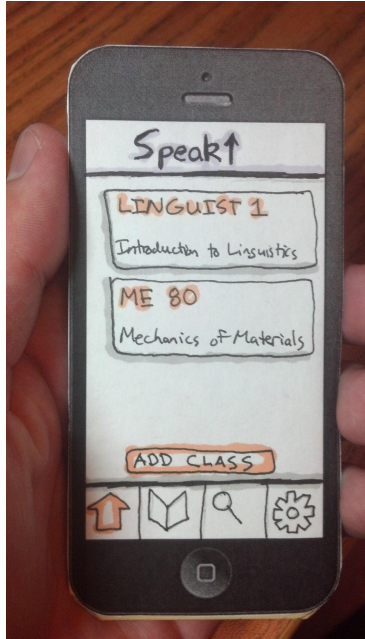 Speak↑
LINGUIST 1
Introduction to Linguistics
ME 80
Mechanics of Materials
ADD CLASS